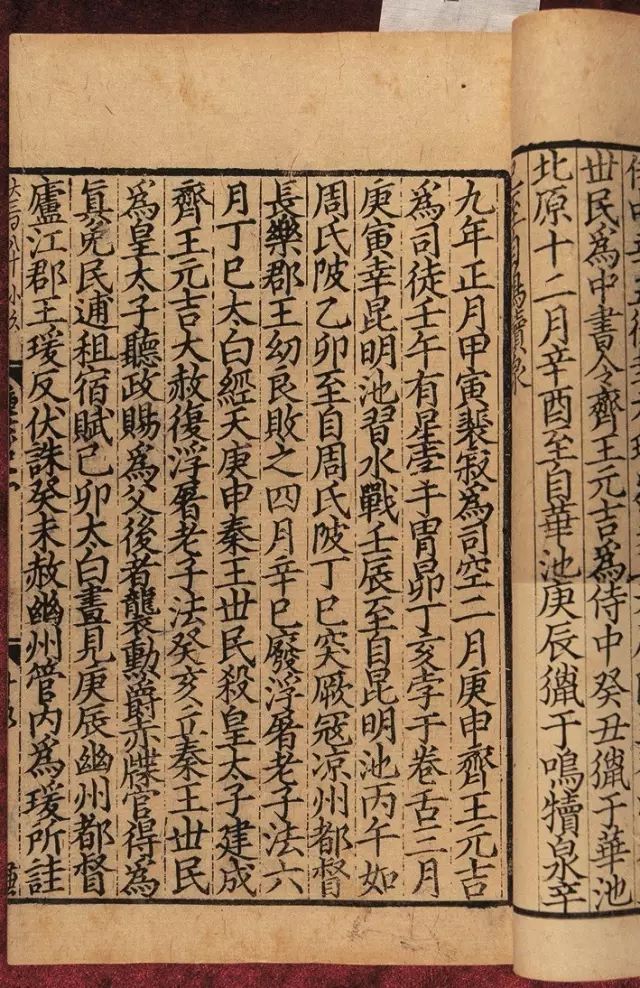 世民爲中書令齊王元吉爲侍中癸丑獵于華池
北原十二月辛酉至自華池庚辰獵于鳴犢泉辛
九年正月甲寅裴寂爲司空二月庚申齊王元吉
爲司徒壬午有星孛于胃昴丁亥孛于卷舌三月
庚寅幸昆明池習水戰壬辰至自昆明池丙午如
周氏陂乙卯至自周氏陂丁巳突厥寇凉州都督
長樂郡王幼良敗之四月辛巳廢浮屠老子法六
月丁巳太白經天庚申秦王世民殺皇太子建成
齊王元吉大赦復浮屠老子法癸亥立秦王世民
爲皇太子聽政賜爲父後者襲勳爵赤牒官得爲
眞免民逋租宿賦己卯太白晝見庚辰幽州都督
廬江郡王瑗反伏誅癸未赦幽州管内爲瑗所詿